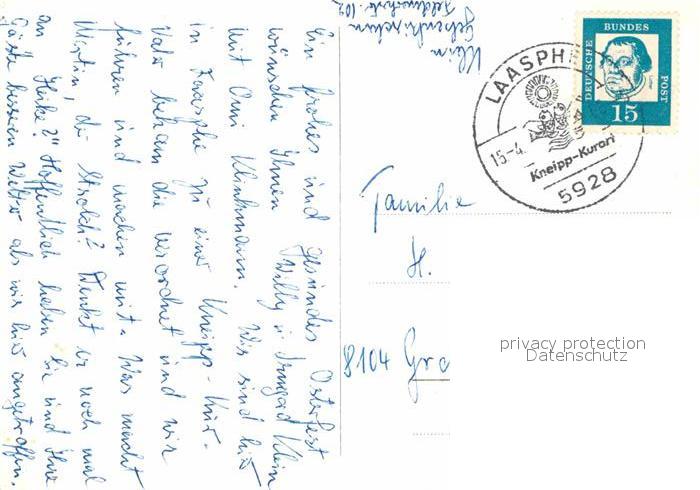 Ein frohes und gesundes Osterfest
wünschen Ihnen Willy u. Irmgard Klein
mit Omi Klinkmann. Wir sind hier
in Laasphe zu einer Kneipp-Kur.
Vater bekam die verordnet und wir
fuhren und machen mit. Was macht
Martin, der Strolch? Denkt er noch mal
an Heike?" Hoffentlich haben Sie und Ihre
Gäste besseres Wetter als wir hier angetroffen.
Klein
Gelsenkirchen
Feldmarkstr. 102
LAASPHE
15-4.
Kneipp-Kurort
5928
DEUTSCHE
BUNDES
POST
15
Familie
H.
8104 Gra
privacy protection
Datenschutz